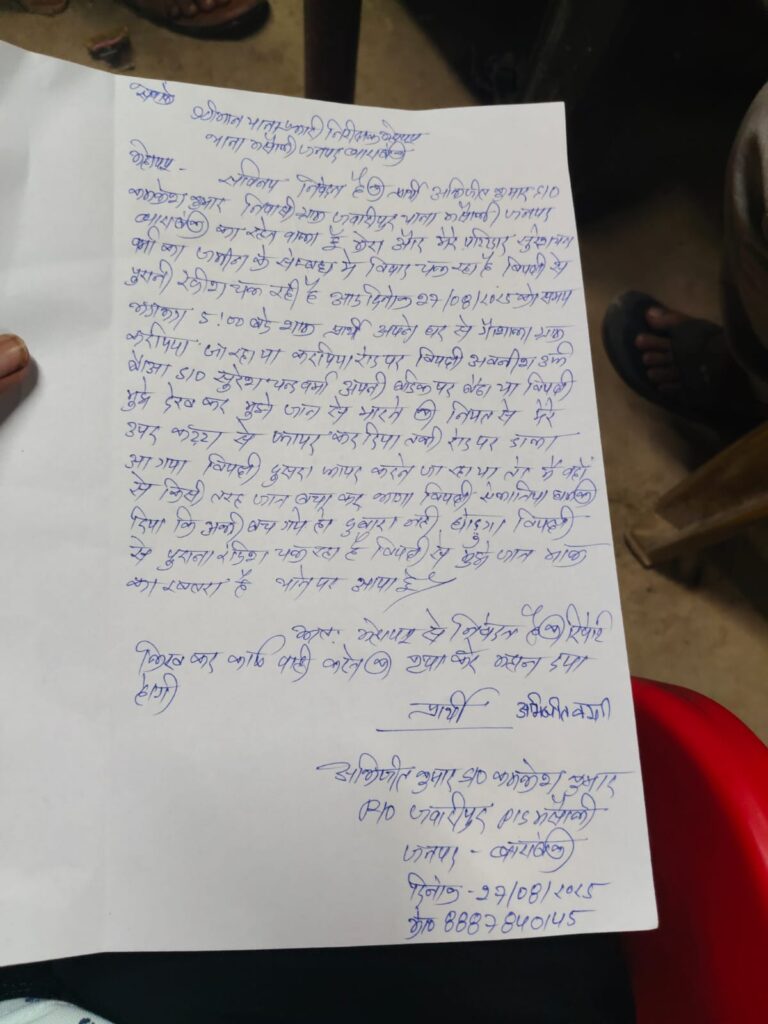 सेवा मे
श्रीमान थाना प्रभारी निरीक्षक महोदय
थाना मसौली जनपद बाराबंकी
महोदय -
सविनय निवेदन है कि प्रार्थी अभिजीत कुमार S/O
कमलेश कुमार निवासी ग्राम ज्वारीपुर थाना मसौली जनपद
बाराबंकी का रहने वाला हूँ मेरा और मेरे परिवार सुरेशचन्द्र
वर्मा का जमीन के सम्बन्ध मे विवाद चल रहा है विपक्षी से
पुरानी रंजिश चल रही है आज दिनांक 27/08/2025 को समय
करीब 5:00 बजे शाम प्रार्थी अपने घर से ग्राम
करपिया जा रहा था करपिया रोड पर विपक्षी अवनीश उर्फ
S/O सुरेश चन्द्र वर्मा अपनी बाइक पर बैठा था विपक्षी
मुझे देख कर मुझे जान से मारने की नियत से मेरे
उपर कट्टा से फायर कर दिया तभी रोड पर डाला
आ गया विपक्षी दुसरा फायर करने जा रहा था तो मै वहाँ
से किसी तरह जान बचा कर भागा विपक्षी धमकी
दिया कि अभी बच गये हो दुबारा नही छोडुगा विपक्षी
से पुराना रंजिश चल रहा है विपक्षी से मुझे जान माल
का खतरा है थाने पर आया हूँ
अतः महोदय से निवेदन है कि रिपोर्ट
लिख कर कार्य वाही करने की कृपा करे महान दया
होगी
प्रार्थी अभिजीत वर्मा
अभिजीत कुमार S/O कमलेश कुमार
R/O ज्वारीपुर P/S मसौली
जनपद - बाराबंकी
दिनांक - 27/08/2025
मो० 8887840145